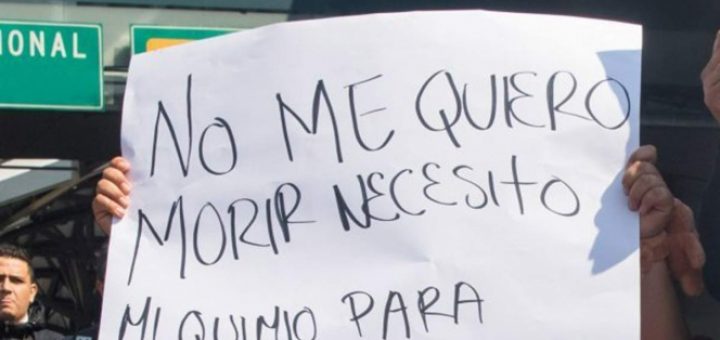 IONAL
NO ME QUIERO
MORIR NECESITO
MI QUIMIO PARA